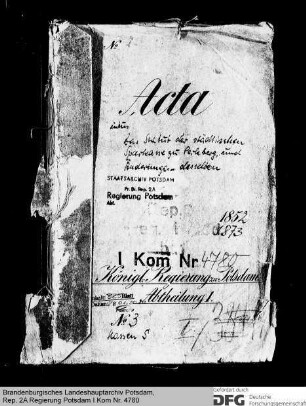 No
Acta
das Statut der städtischen
Sparkasse zu Perleberg, und
Änderungen desselben
STAATSARCHIV POTSDAM
Pr. Br. Rep. 2A
Regierung Potsdam
Abt.
1852
1873
I Kom Nr. 4780
Königl. Regierung zu Potsdam
Abtheilung I.
Fach
No 3
Kassen S
Brandenburgisches Landeshauptarchiv Potsdam,
Rep. 2A Regierung Potsdam I Kom Nr. 4780
Gefördert durch
DFG Deutsche
Forschungsgemeinschaft